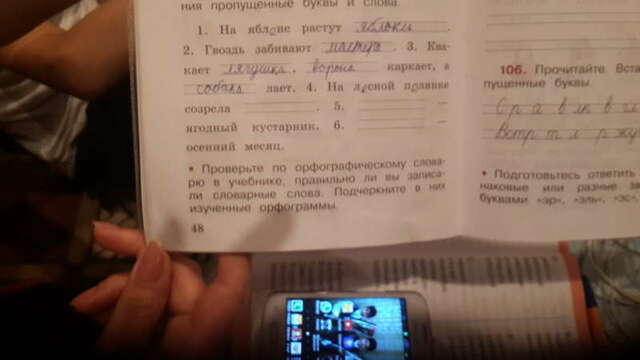 ния пропущенные буквы и слова.
1. На яблоне растут яблоки.
2. Гвоздь забивают . 3. Ква-
кает лягушка, ворона каркает, а
собака лает. 4. На лесной полянке
созрела . 5. —
ягодный кустарник. 6. —
осенний месяц.
• Проверьте по орфографическому слова-
рю в учебнике, правильно ли вы записа-
ли словарные слова. Подчеркните в них
изученные орфограммы.
48
106. Прочитайте. Вста
пущенные буквы.
• Подготовьтесь ответить
наковые или разные за
буквами «эр», «эль», «эс»,